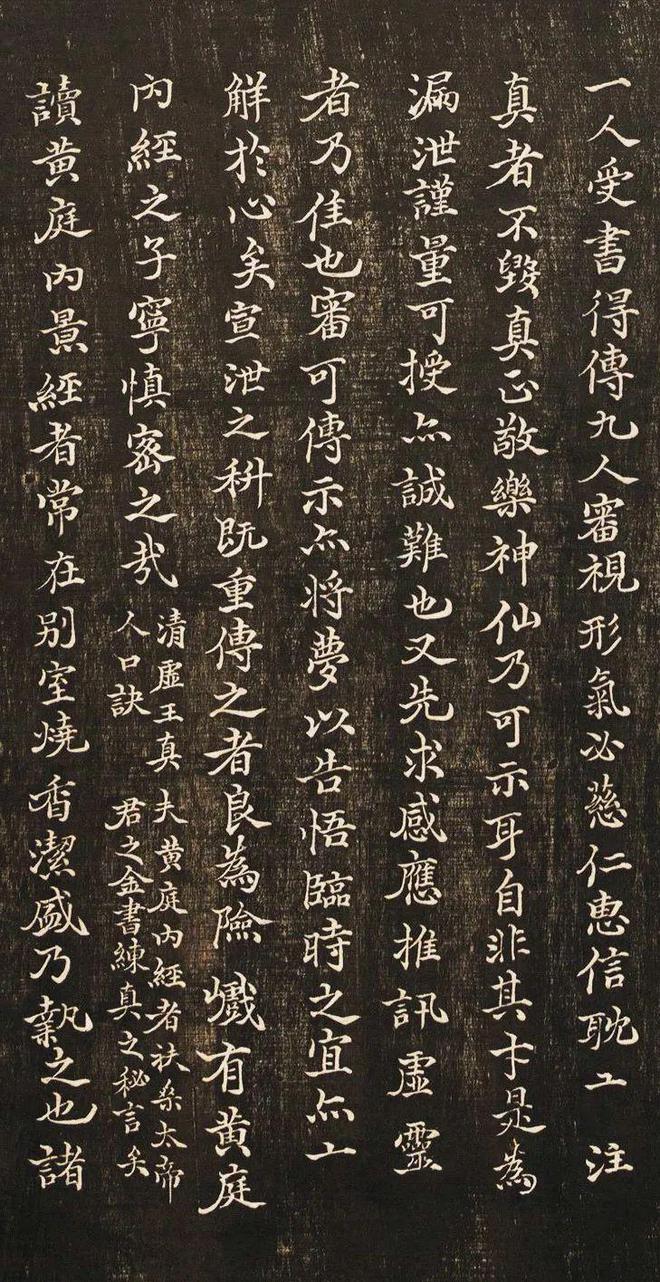 一人受書得傳九人審視形氣必慈仁惠信耽工注
真者不毀真正敬樂神仙乃可示耳自非其卞是為
漏泄謹量可授亦誠難也又先求感應推訊虛靈
者乃佳也審可傳示亦将夢以告悟臨時之宜亦工
觧於心矣宣泄之科既重傳之者良為險巇有黃庭
內經之子寧慎宻之㢤
清虛王真
人口訣
夫黃庭內經者扶桒太帝
君之金書練真之秘言矣
讀黃庭內景經者常在別室燒香潔盛乃執之也諸